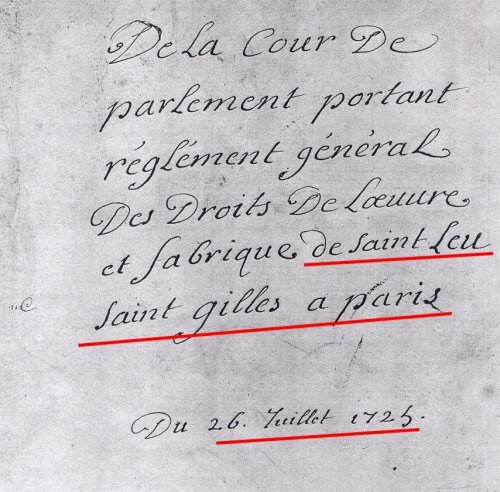 De La Cour De
parlement portant
réglément général
Des Droits De Lœuure
et fabrique de saint Leu
saint gilles a paris
Du 26. Juillet 1725.